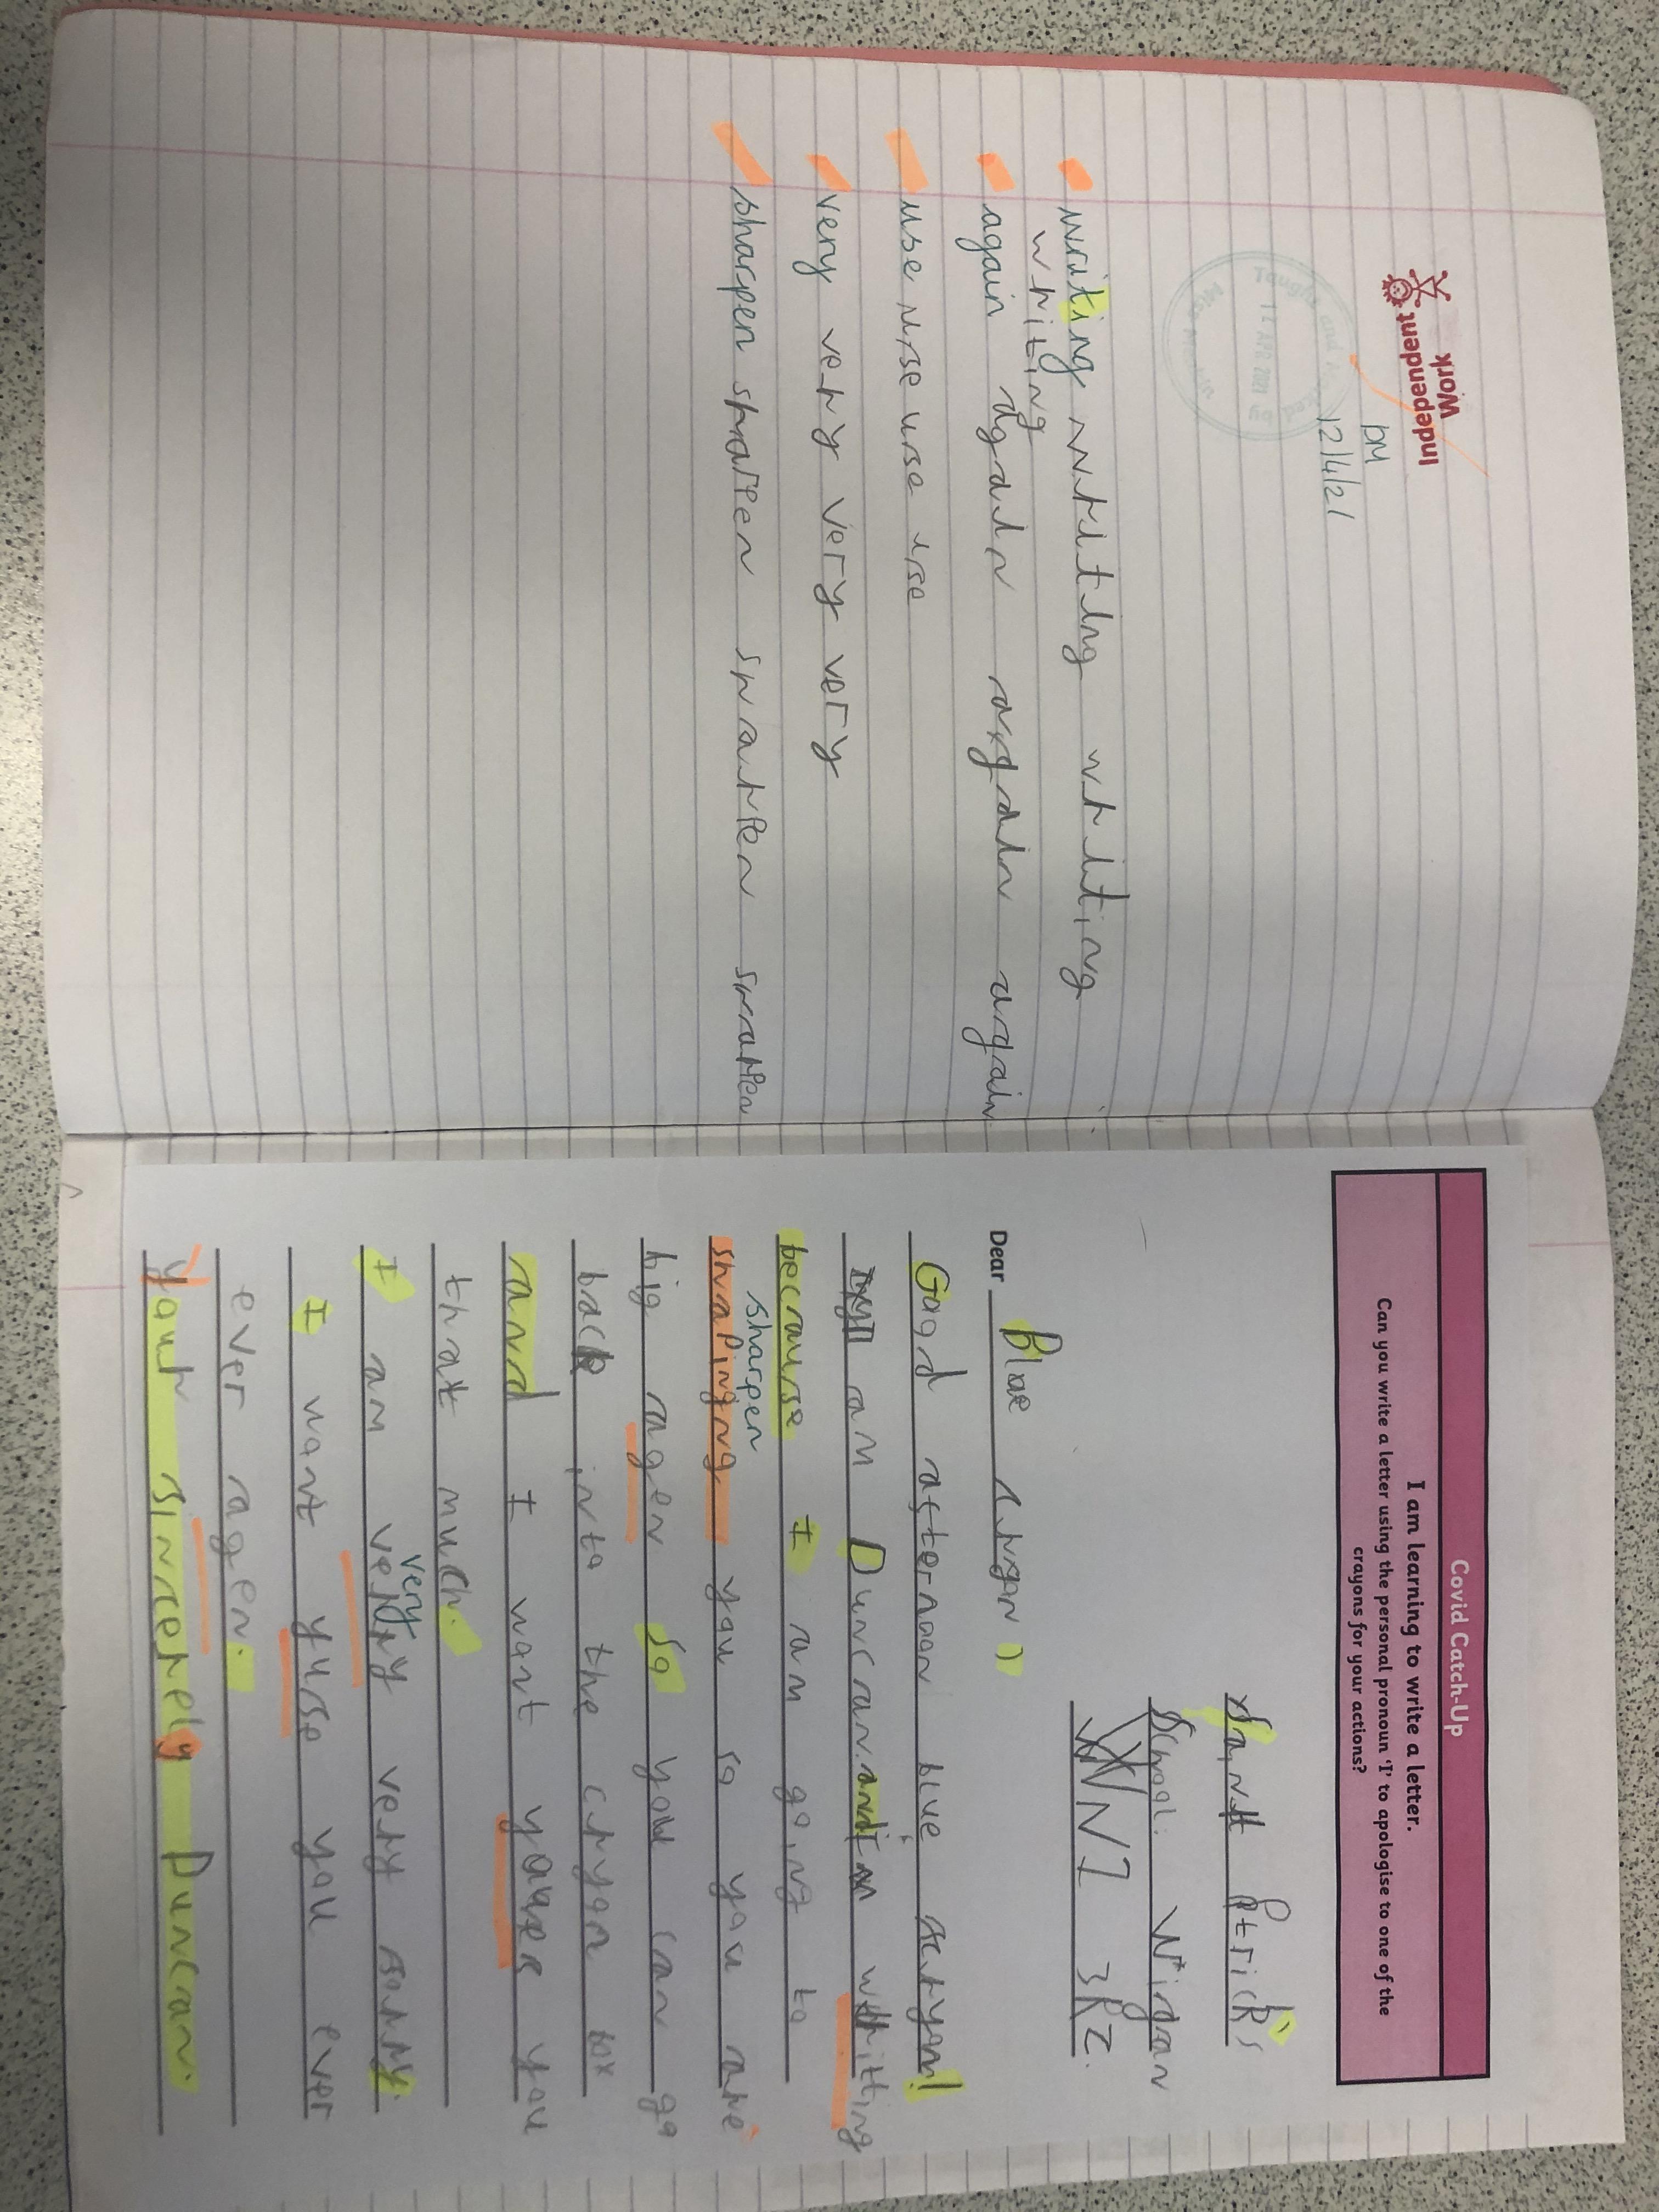 Independent
Work
PM
12/4/21
Taught and
12 APR 2021
writing writing writing
writing
again again again again
use use use use
very very very very
sharpen sharpen sharpen sharpen
Covid Catch-Up
I am learning to write a letter.
Can you write a letter using the personal pronoun 'I' to apologise to one of the
crayons for your actions?
Saint Ptrick's
School. Wigan
WN1 3RZ.
Dear Blue
Good afternoon blue cryon!
am Duncan. and I am writting
because I am going to
sharpen
shaPinging you so you are
big agen So you can go
back into the cryon box
and I want you
that much.
very
I am very very sorry.
I want yuse you ever
ever agen.
your sincerely Duncan.